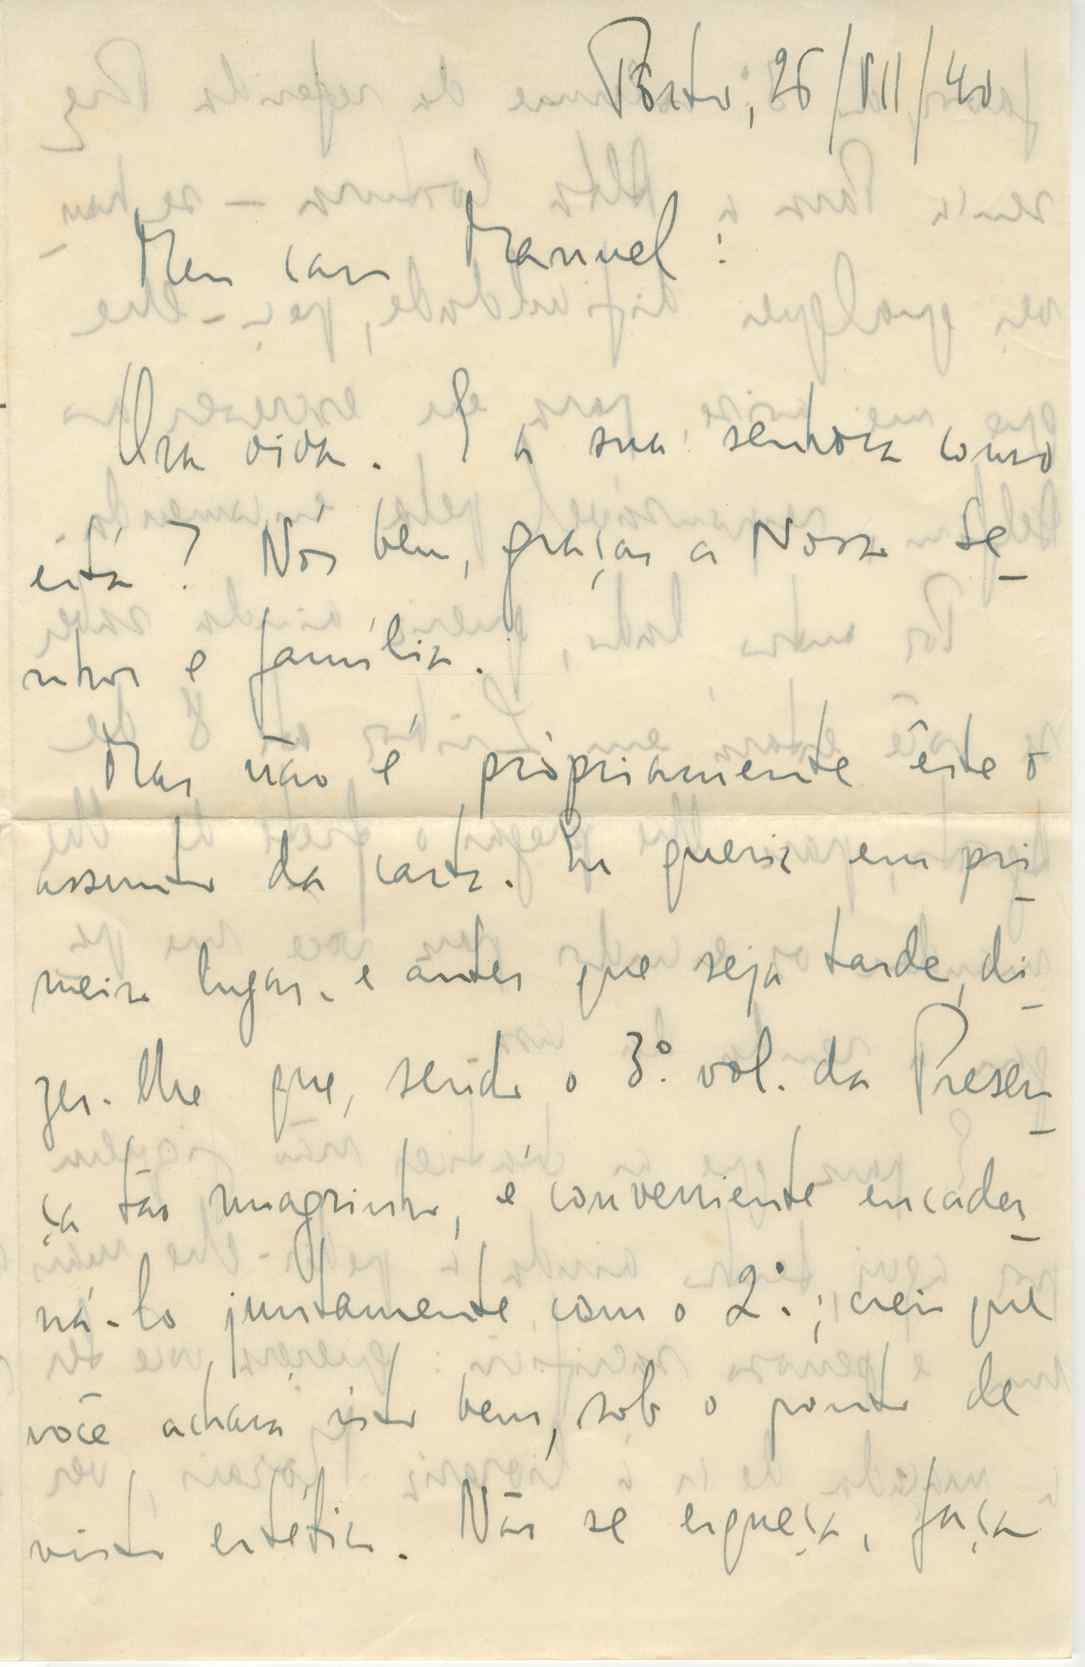 Porto, 26/VII/40
Meu caro Manuel:
Ora viva. E a sua senhora como
está? Nós bem, graças a Nosso Se-
nhor e família.
Mas não é pròpriamente êste o
assunto da carta. Eu queria em pri-
meiro lugar, e antes que seja tarde, di-
zer-lhe que, sendo o 3º. vol. da Presen-
ça tão magrinho, é conveniente encader-
ná-lo juntamente com o 2º.; creio que
você achará isto bem, sob o ponto de
vista estético. Não se esqueça, faça